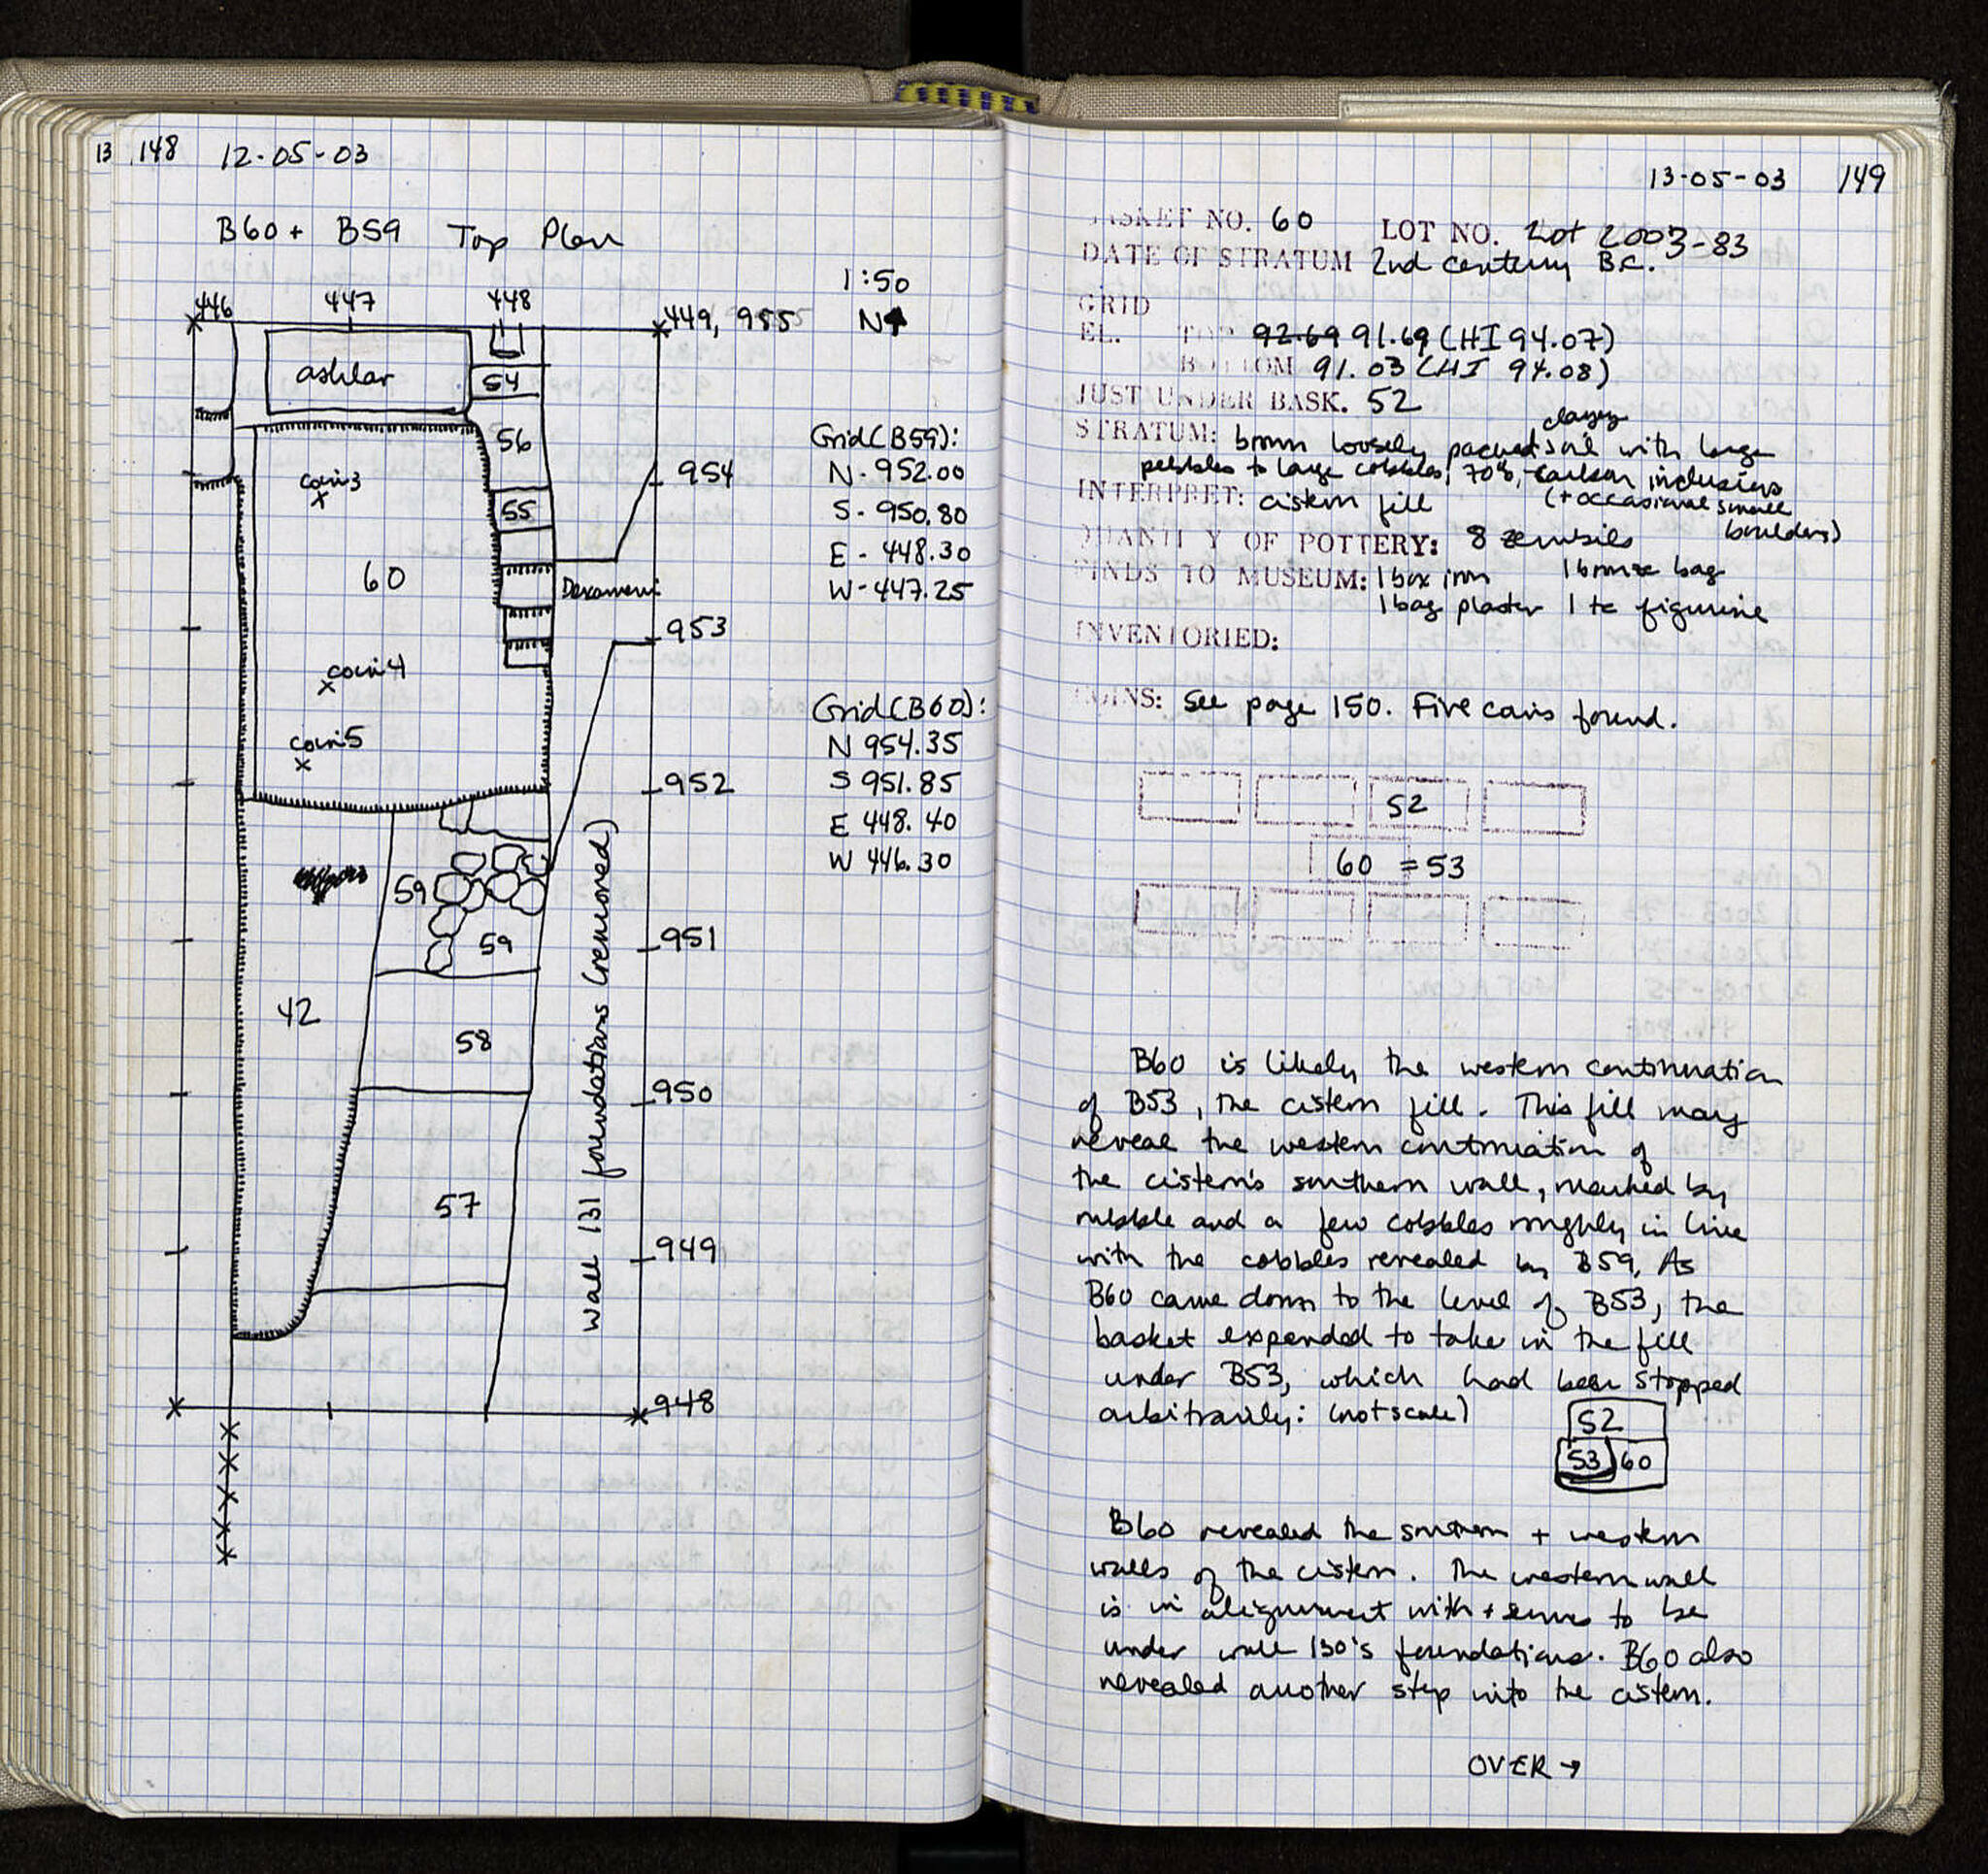 13 148 12-05-03
B60 + B59 Top Plan
1:50
N
446 447 448 449, 955
ashlar
54
56
coin 3
55
954
60
Dexameni
953
coin 4
coin 5
952
59
59
951
42
58
950
57
949
wall 131 foundations (removed)
948
Grid (B59):
N - 952.00
S - 950.80
E - 448.30
W - 447.25
Grid (B60):
N 954.35
S 951.85
E 448.40
W 446.30
13-05-03 149
BASKET NO. 60 LOT NO. Lot 2003-83
DATE OF STRATUM 2nd century B.C.
GRID
EL. TOP 92.69 91.69 (HI 94.07)
BOTTOM 91.03 (HI 94.08)
JUST UNDER BASK. 52
clayey
STRATUM: brown loosely packed soil with large
pebbles to large cobbles, 70%, carbon inclusions
INTERPRET: cistern fill (+ occasional small
boulders)
QUANTITY OF POTTERY: 8 zembils
FINDS TO MUSEUM: 1 box iron 1 bronze bag
1 bag plaster 1 tc figurine
INVENTORIED:
COINS: See page 150. Five coins found.
52
60 = 53
B60 is likely the western continuation
of B53, the cistern fill. This fill may
reveal the western continuation of
the cistern's southern wall, marked by
rubble and a few cobbles roughly in line
with the cobbles revealed by B59. As
B60 came down to the level of B53, the
basket expanded to take in the fill
under B53, which had been stopped
arbitrarily: (not scale)
52
53 60
B60 revealed the southern + western
walls of the cistern. The western wall
is in alignment with + seems to be
under wall 130's foundations. B60 also
revealed another step into the cistern.
OVER →